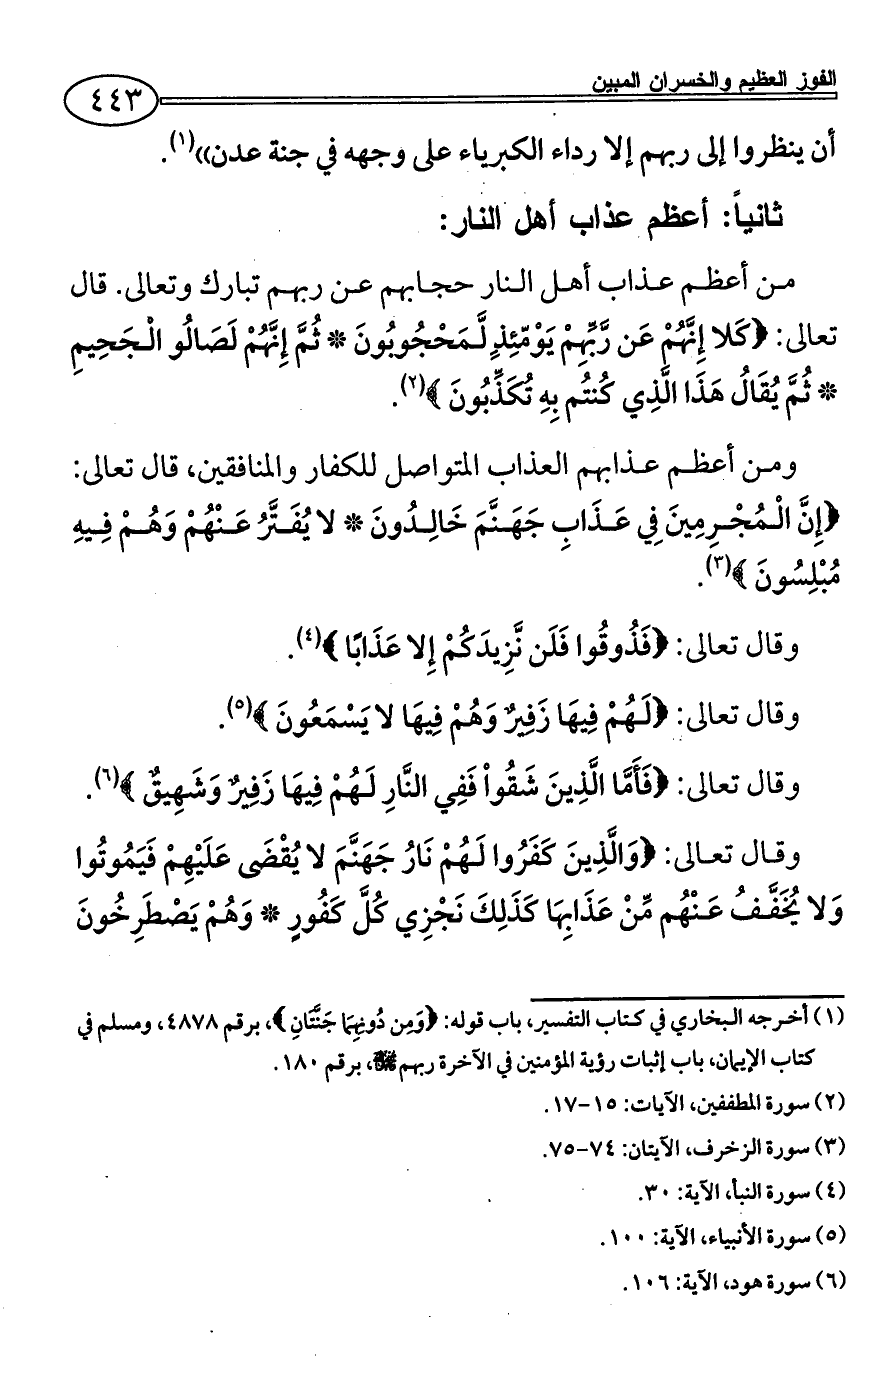 الفوز العظيم والخسران المبين
٤٤٣
أن ينظروا إلى ربهم إلا رداء الكبرياء على وجهه في جنة عدن»(١).
ثانياً: أعظم عذاب أهل النار:
من أعظم عذاب أهل النار حجابهم عن ربهم تبارك وتعالى. قال
تعالى: ﴿كَلا إِنَّهُمْ عَن رَّبِّهِمْ يَوْمَئِذٍ لَّمَحْجُوبُونَ * ثُمَّ إِنَّهُمْ لَصَالُو الْجَحِيمِ
* ثُمَّ يُقَالُ هَذَا الَّذِي كُنتُم بِهِ تُكَذِّبُونَ﴾(٢).
ومن أعظم عذابهم العذاب المتواصل للكفار والمنافقين، قال تعالى:
﴿إِنَّ الْمُجْرِمِينَ فِي عَذَابِ جَهَنَّمَ خَالِدُونَ * لا يُفَتَّرُ عَنْهُمْ وَهُمْ فِيهِ
مُبْلِسُونَ﴾(٣).
وقال تعالى: ﴿فَذُوقُوا فَلَن نَّزِيدَكُمْ إِلا عَذَابًا﴾(٤).
وقال تعالى: ﴿لَهُمْ فِيهَا زَفِيرٌ وَهُمْ فِيهَا لا يَسْمَعُونَ﴾(٥).
وقال تعالى: ﴿فَأَمَّا الَّذِينَ شَقُواْ فَفِي النَّارِ لَهُمْ فِيهَا زَفِيرٌ وَشَهِيقٌ﴾(٦).
وقال تعالى: ﴿وَالَّذِينَ كَفَرُوا لَهُمْ نَارُ جَهَنَّمَ لا يُقْضَى عَلَيْهِمْ فَيَمُوتُوا
وَلا يُخَفَّفُ عَنْهُم مِّنْ عَذَابِهَا كَذَلِكَ نَجْزِي كُلَّ كَفُورٍ * وَهُمْ يَصْطَرِخُونَ
(١) أخرجه البخاري في كتاب التفسير، باب قوله: ﴿وَمِن دُونِهِمَا جَنَّتَانِ﴾، برقم ٤٨٧٨، ومسلم في
كتاب الإيمان، باب إثبات رؤية المؤمنين في الآخرة ربهم ﷻ، برقم ١٨٠.
(٢) سورة المطففين، الآيات: ١٥-١٧.
(٣) سورة الزخرف، الآيتان: ٧٤-٧٥.
(٤) سورة النبأ، الآية: ٣٠.
(٥) سورة الأنبياء، الآية: ١٠٠.
(٦) سورة هود، الآية: ١٠٦.